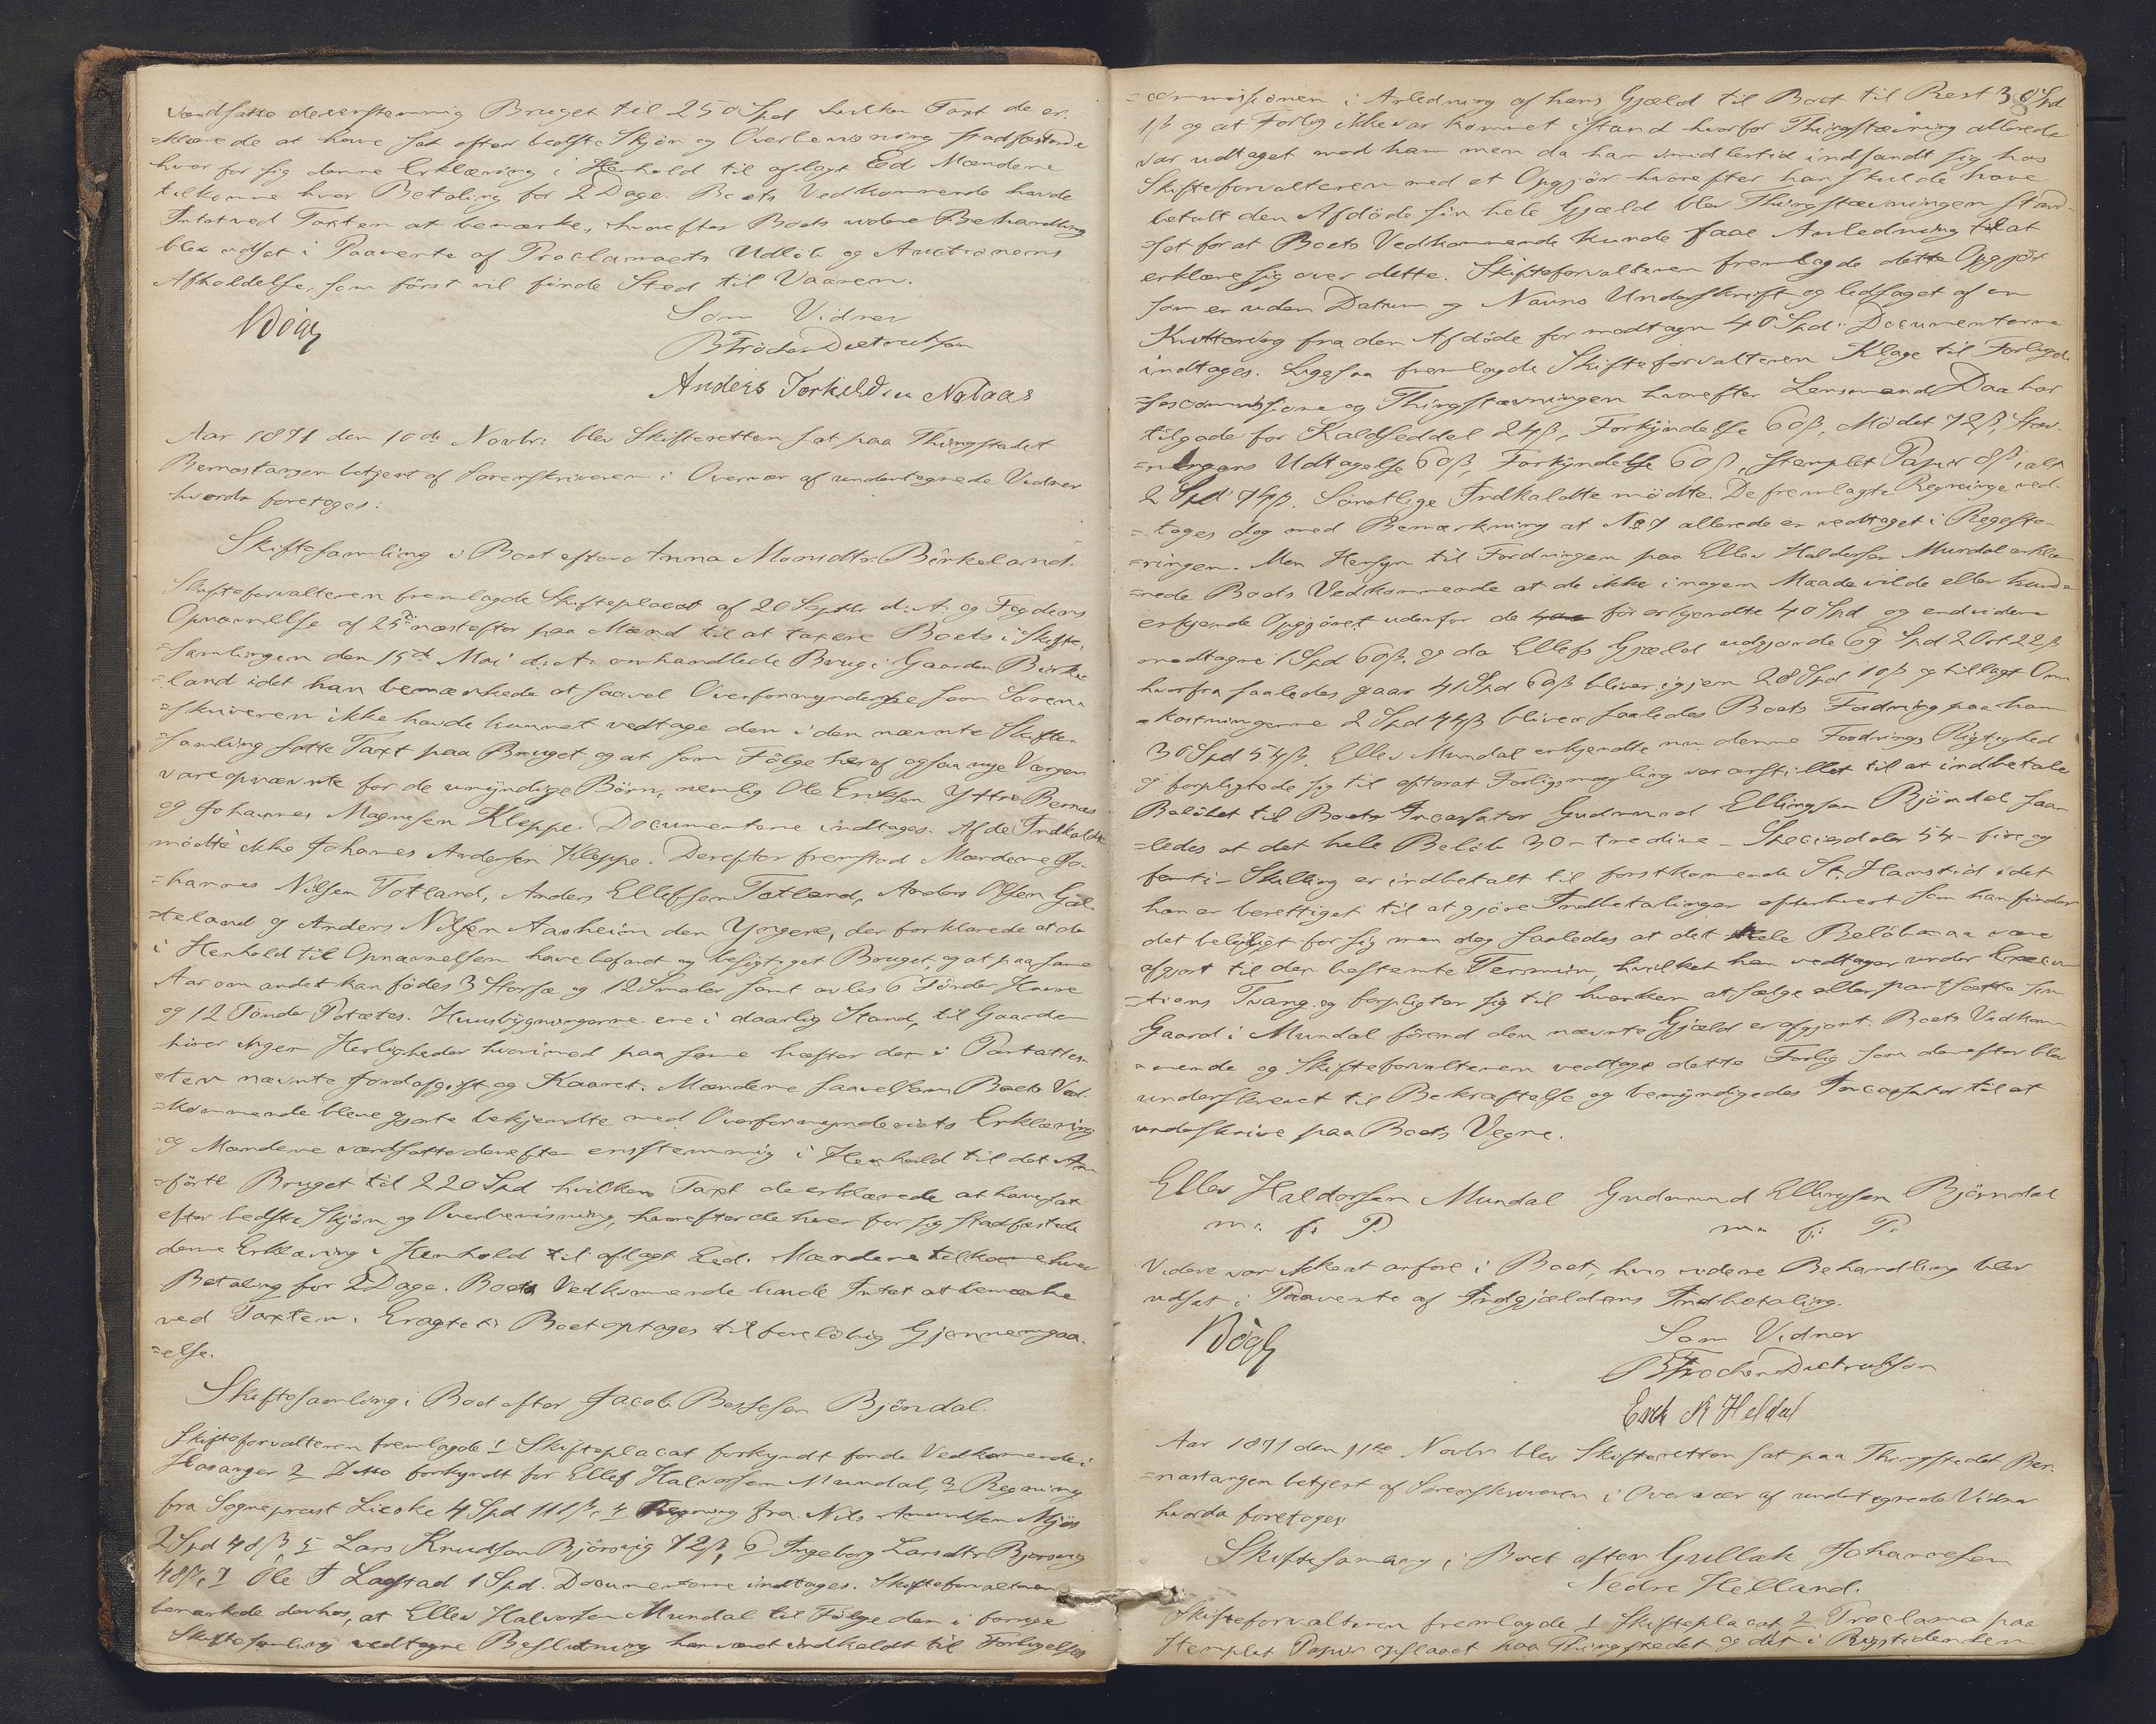 værdsatte de eenstemmig Bruget til 250 Spd hvilken Taxt de er-
=klærede at have sat efter bedste Skjøn og Overbeviisning stadfæstende
hver for sig denne Erklæring i Henhold til aflagt Eed. Mændene
tilkomme hver Betaling for 2 Dage. Boets Vedkommende havde
Intet ved Taxten at bemærke, hvorefter Boets videre Behandling
blev udsat i Paavente af Proclamaets Udløb og Auctionens
Afholdelse, som først vil finde Sted til Vaaren.
Bøgh
Som Vidner
B Trochen Dietrichson
Anders Torkildsen Nataas
Aar 1871 den 10de Novbr: blev Skifteretten sat paa Thingstedet
Bernestangen betjent af Sorenskriveren i Overvær af undertegnede Vidner
hvorda foretoges:
Skiftesamling i Boet efter Anna Monsdtr. Birkeland.
Skifteforvalteren fremlagde Skifteplacat af 20 Septbr d: A: og Fogdens
Opnævnelse af 25de næstefter paa Mænd til at taxere Boets i Skifte-
=samlingen den 15de Mai d: A: omhandlede Brug i Gaarden Birke
=land idet han bemærkede at saavel Overformynderne som Soren-
=skriveren ikke havde kunnet vedtage den i den nævnte Skifte-
samling satte Taxt paa Bruget og at som Følge heraf ogsaa nye Værger
vare opnævnte for de umyndige Børn, nemlig Ole Eriksen Yttre Bernes
og Johannes Magnesen Kleppe. Documenterne indtages. Af de Indkaldte
mødte ikke Johannes Andersen Kleppe. Derefter fremstod Mændene Jo-
=hannes Nilsen Totland, Anders Ellefsen Totland, Anders Olsen Gjel-
=teland og Anders Nilsen Aasheim den Yngere, der forklarede at de
i Henhold til Opnævnelsen have befaret og besigtiget Bruget, og at paa samme
Aar om andet kan fødes 3 Storfæ og 12 Smaler samt avles 6 Tønder Havre
og 12 Tønder Potætes. Huusbygningerne ere i daarlig Stand, til Gaarden
hører ingen Herligheder hvorimod paa samme hæfter den i Partattes-
=ten nævnte Jordafgift og Kaaret. Mændene saavelsom Boets Ved-
=kommende bleve gjorte bekjendte med Overformynderiets Erklæring
og Mændene værdsatte derefter enstemmig i Henhold til det An-
=førte Bruget til 220 Spd hvilken Taxt de erklærede at have sat
efter bedste Skjøn og Overbevisning, hvorefter de hver for sig stadfæstede
denne Erklæring i Henhold til aflagt Eed. Mændene tilkomme hver
Betaling for 2 Dage. Boets Vedkommende havde Intet at bemærke
ved Taxten. Eragtet: Boet optages til foreløbig Gjennemgaa-
=else.
Skiftesamling i Boet efter Jacob Bessesen Bjøndal.
Skifteforvalteren fremlagde 1 Skifteplacat forkyndt for de Vedkommende i
Hosanger 2 Ditto forkyndt for Ellef Halvorsen Mundal, 3 Regning
fra Sogneprest Lieske 4 Spd 118 ß, 4 Regning fra Nils Amundsen Mjøs
2 Spd 48 ß, 5 Lars Knudsen Bjørsvig 72 ß, 6 Ingeborg Larsdtr Bjorsvig
48 ß, 7 Ole T Lagstad 1 Spd. Documenterne indtages. Skifteforvalteren
bemærkede derhos, at Ellev Halvorsen Mundal til Følge den i forrige
Skiftesamling vedtagne Beslutning har været indkaldt til Forligelses
=commissionen i Anledning af hans Gjæld til Boet til Rest 30 Spd
1 ß og at Forlig ikke var kommet istand hvorfor Thingstævning allerede
var udtaget mod ham men da han imidlertid indfandt sig hos
Skifteforvalteren med et Opgjør hvorefter han skulde have
betalt den Afdøde sin hele Gjæld blev Thingstævningen stand-
=set for at Boets Vedkommende kunde faae Anledning til at
erklære sig over dette. Skifteforvalteren fremlagde dette Opgjør
som er uden Datum og Navns Underskrift og ledsaget af en
Kvittering fra den Afdøde for modtagne 40 Spd: Documenterne
indtages. Ligesaa fremlagde Skifteforvalteren Klage til Forligel-
=sescommissione og Thingstævningen hvorefter Lensmand Daa har
tilgode for Kaldseddel 24 ß, Forkyndelse 60 ß, Mødet 72 ß, Stæv-
=ningens Udtagelse 60 ß, Forkyndelse 60 ß, stemplet Papir 8 ß ialt
2 Spd 74 ß. Samtlige Indkaldte mødte. De fremlagte Regninge ved-
=toges dog med Bemærkning at No 7 allerede er vedtaget i Registe-
=ringen. Men Hensyn til Fordringen paa Ellev Haldorsen Mundal erklæ-
=rede Boets Vedkommende at de ikke i nogen Maade vilde eller kunde
erkjende Opgjøret udenfor de før erkjendte 40 Spd og endvidere
modtagne 1 Spd 60 ß. og da Ellefs Gjæld udgjorde 69 Spd 2 Ort 22 ß
hvorfra saaledes gaar 41 Spd 60 ß bliver igjen 28 Spd 10 ß og tillagt Om
=kostningerne 2 Spd 44 ß bliver saaledes Boets Fordring paa ham
30 Spd 54 ß. Ellev Mundal erkjendte nu denne Fordrings Rigtighed
og forpligtede sig til efterat Forligsmægling var anstillet til at indbetale
Beløbet til Boets Incassator Gudmund Ellingsen Bjøndal saa-
=ledes at det hele Beløb 30 – tredive – Speciedaler 54 – fire og
femti – Skilling er indbetalt til førstkommende St. Hanstid idet
han er berettiget til at gjøre Indbetalinger efterhvert som han finder
det beleiligt for sig men dog saaledes at det hele Beløb maa være
afgjort til den bestemte Termin, hvilket han vedtager under Execu
=tions Tvang og forpligter sig til hverken at sælge eller pantsætte sin
Gaard i Mundal førend den nævnte Gjæld er afgjort. Boets Vedkom-
=mende og Skifteforvalteren vedtage dette Forlig som derefter blev
underskrevet til Bekræftelse og bemyndigedes Incassator til at
underskrive paa Boets Vegne.
Ellev Haldorsen Mundal Gudmund Ellingsen Bjørndal
m: f: P. m: f: P.
Videre var ikke at anføre i Boet, hvis videre Behandling blev
udsat i Paavente af Indgjældens Indbetaling.
Bøgh
Som Vidner
B Trochen Dietrichson
Erik N Heldal
Aar 1871 den 11te Novbr blev Skifteretten sat paa Thingstedet Ber-
=nestangen betjent af Sorenskriveren i Overvær af undertegnede Vidner
hvorda foretoges:
Skiftesamling i Boet efter Gullak Johannesen
Nedre Helland.
Skifteforvalteren fremlagde 1 Skifteplacat, 2 Proclama paa
stemplet Papir opslaaet paa Thingstedet og dit i Rigstidenden